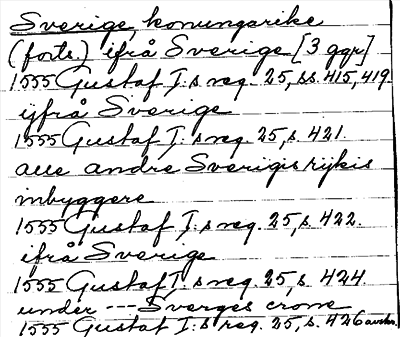 Sverige, konungarike
(forts.) ifrå Sverige [3 ggr]
1555 Gustaf I:s reg. 25, ss. 415, 419.
ijfrå Sverige
1555 Gustaf I:s reg. 25, s. 421.
alle andre Sverigis rijkis
inbyggere
1555 Gustaf I:s reg. 25, s. 422.
ifrå Sverige
1555 Gustaf I:s reg. 25, s. 424.
under --- Sverges crone
1555 Gustaf I:s reg. 25, s. 426 avskr.